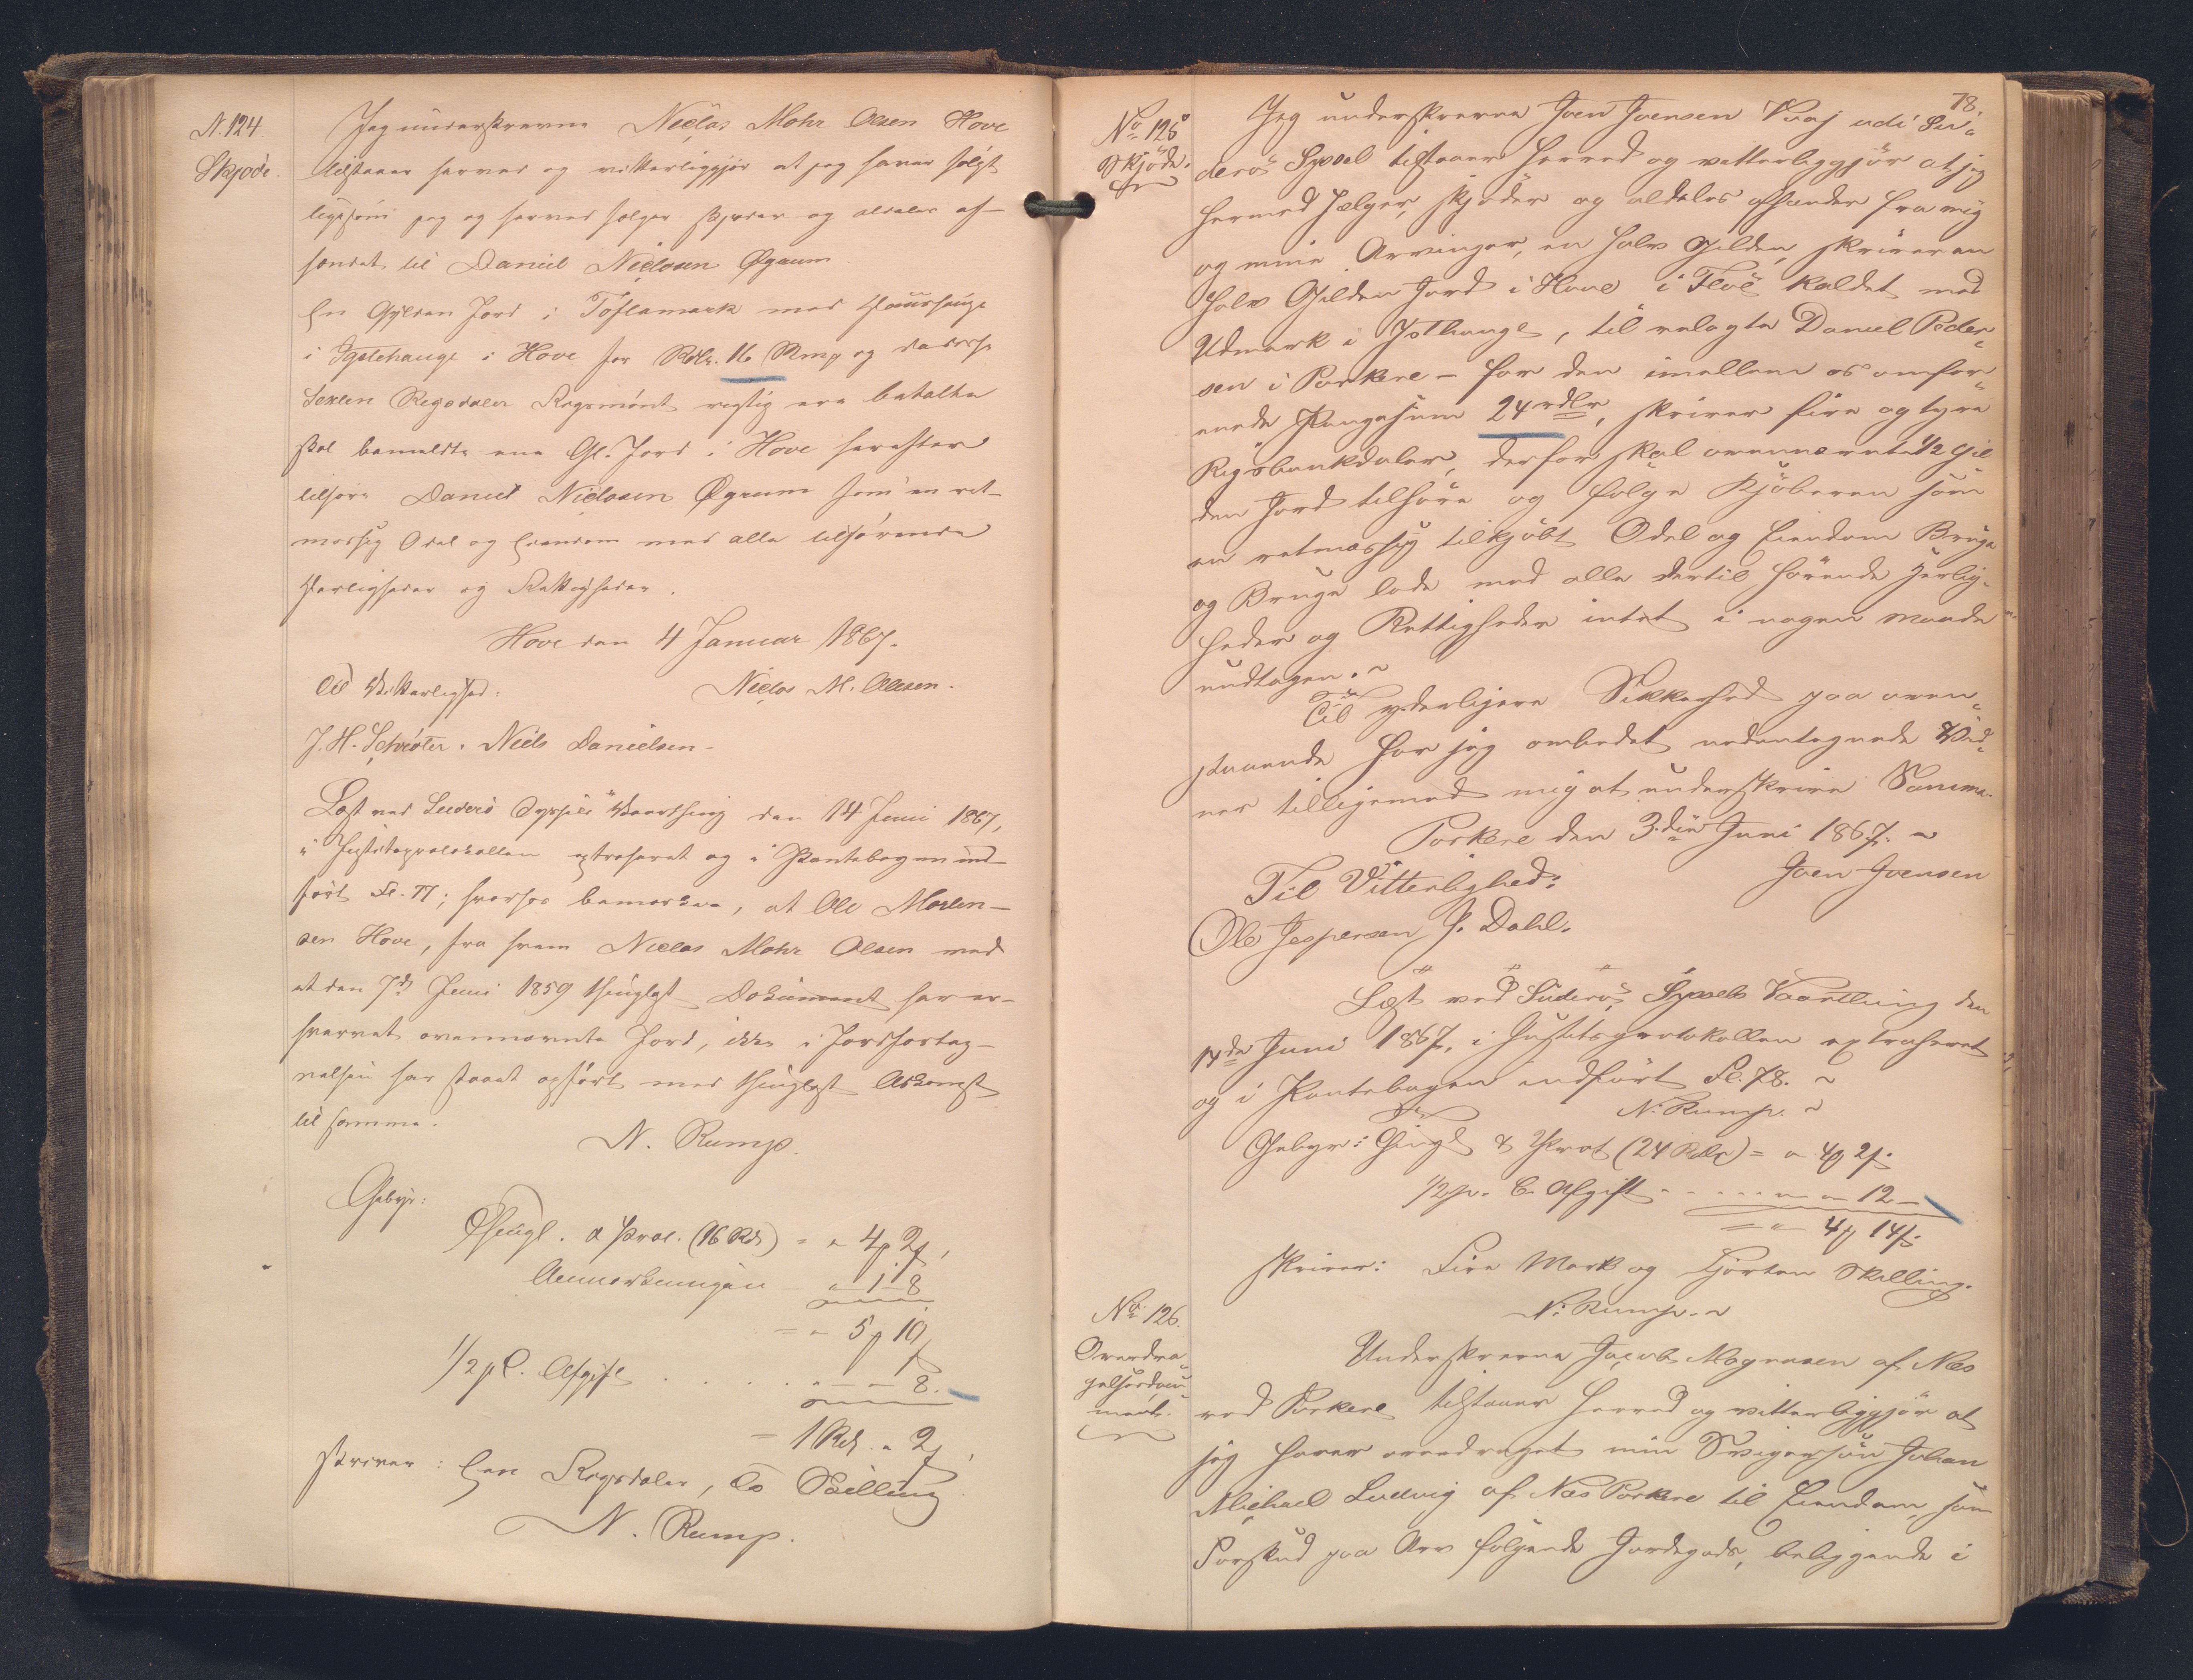 N. 124
Skjøde.
Jeg underskrevne Niclas Mohr Olsen Hove
tilstaaer herved og vitterliggjør at jeg haver solgt
ligesom jeg og herved sælger skjøder og aldeles af-
hændet til Daniel Nielsen Øgrum
En Gylden Jord i Toflamark med
i Hove for Rdlr. 16 Rmp og da disse
Sexten Rigsdaler Rigsmønt rigtig ere betalte
skal bemeldte ene Gl. Jord i Hove herefter
tilhøre Daniel Nielsen Øgrum som en ret-
mæssig Odel og Eiendom med alle tilhørende
Herligheder og Rettigheder.
Hove den 4 Januar 1867.
Niclas M. Olsen.
Til Vitterlighed:
J. H. Schrøter. Niels Danielsen.
Læst ved Suderø Syssels Vaarthing den 14 Juni 1867,
i Justitsprotokollen extraheret og i Pantebogen ind-
ført Fl. 77; hvorhos bemærkes, at Ole Morten-
sen Hove, fra hvem Niclas Mohr Olsen ved
et den 7de Juni 1859 thinglæst Dokument har er-
hvervet ovennævnte Jord, ikke i Jordforteg-
nelsen har staaet opført med thinglæst Adkomst
til samme.
N. Rump.
Gebyr:
Thingl. & Prot. (16 Rd) = " 4 ꝑ 2 ß,
Anmærkningen " 1 - 8
= " 5 ꝑ 10
1/2 pC. Afgift . . . . " - - 8.
= 1 Rd. " 2 ß.
skriver: Een Rigsdaler, to Skilling
N. Rump.
78.
No 125
Skjøde.
Jeg underskrevne Joen Joensen Vaaj udi Su-
derøs Syssel tilstaaer herved og vitterliggjør at jeg
hermed sælger, skjøder og aldeles afhænder fra mig
og mine Arvinger, en halv Gylden, skriver en
halv Gylden Jord i Hove i kaldet med
Udmark i , til velagte Daniel Peder-
sen i Porkere - for den imellem os omfor-
enede Pengesum 24 rdlr, skriver fire og tyve
Rigsbankdaler, derfor skal ovennævnte 1/2 Gyl
den Jord tilhøre og følge Kjøberen som
en retmæssig tilkjøbt Odel og Eiendom Bruge
og Bruge lade med alle dertil hørende Herlig-
heder og Rettigheder intet i nogen Maade
undtagen.
Til yderligere Sikkerhed paa oven-
staaende har jeg ombedet nedentegnede Vid-
ner tilligemed mig at underskrive Samme.
Porkere den 3.die Juni 1867.
Joen Joensen
Til Vitterlighed:
Ole Jespersen J. Dahl.
Læst ved Suderøs Syssels Vaarthing den
14de Juni 1867, i Justitsprotokollen extraheret
og i Pantebogen indført Fl. 78.
N. Rump.
Gebyr: Thingl & Prot (24 Rdlr) = " 4 ꝑ 2 ß
1/2 p. C. Afgift - - - - " " 12
= " 4 ꝑ 14 ß
skriver: Fire Mark og Fjorten Skilling.
N. Rump.
No 126.
Overdra-
gelsesdocu-
ment.
Underskrevne Jacob Magnusen af Næs
ved Porkere tilstaaer herved og vitterliggjør at
jeg haver overdraget min Svigersøn Johan
Michael Ludvig af Næs Porkere til Eiendom, som
Forskud paa Arv følgende Jordegods, beliggende i